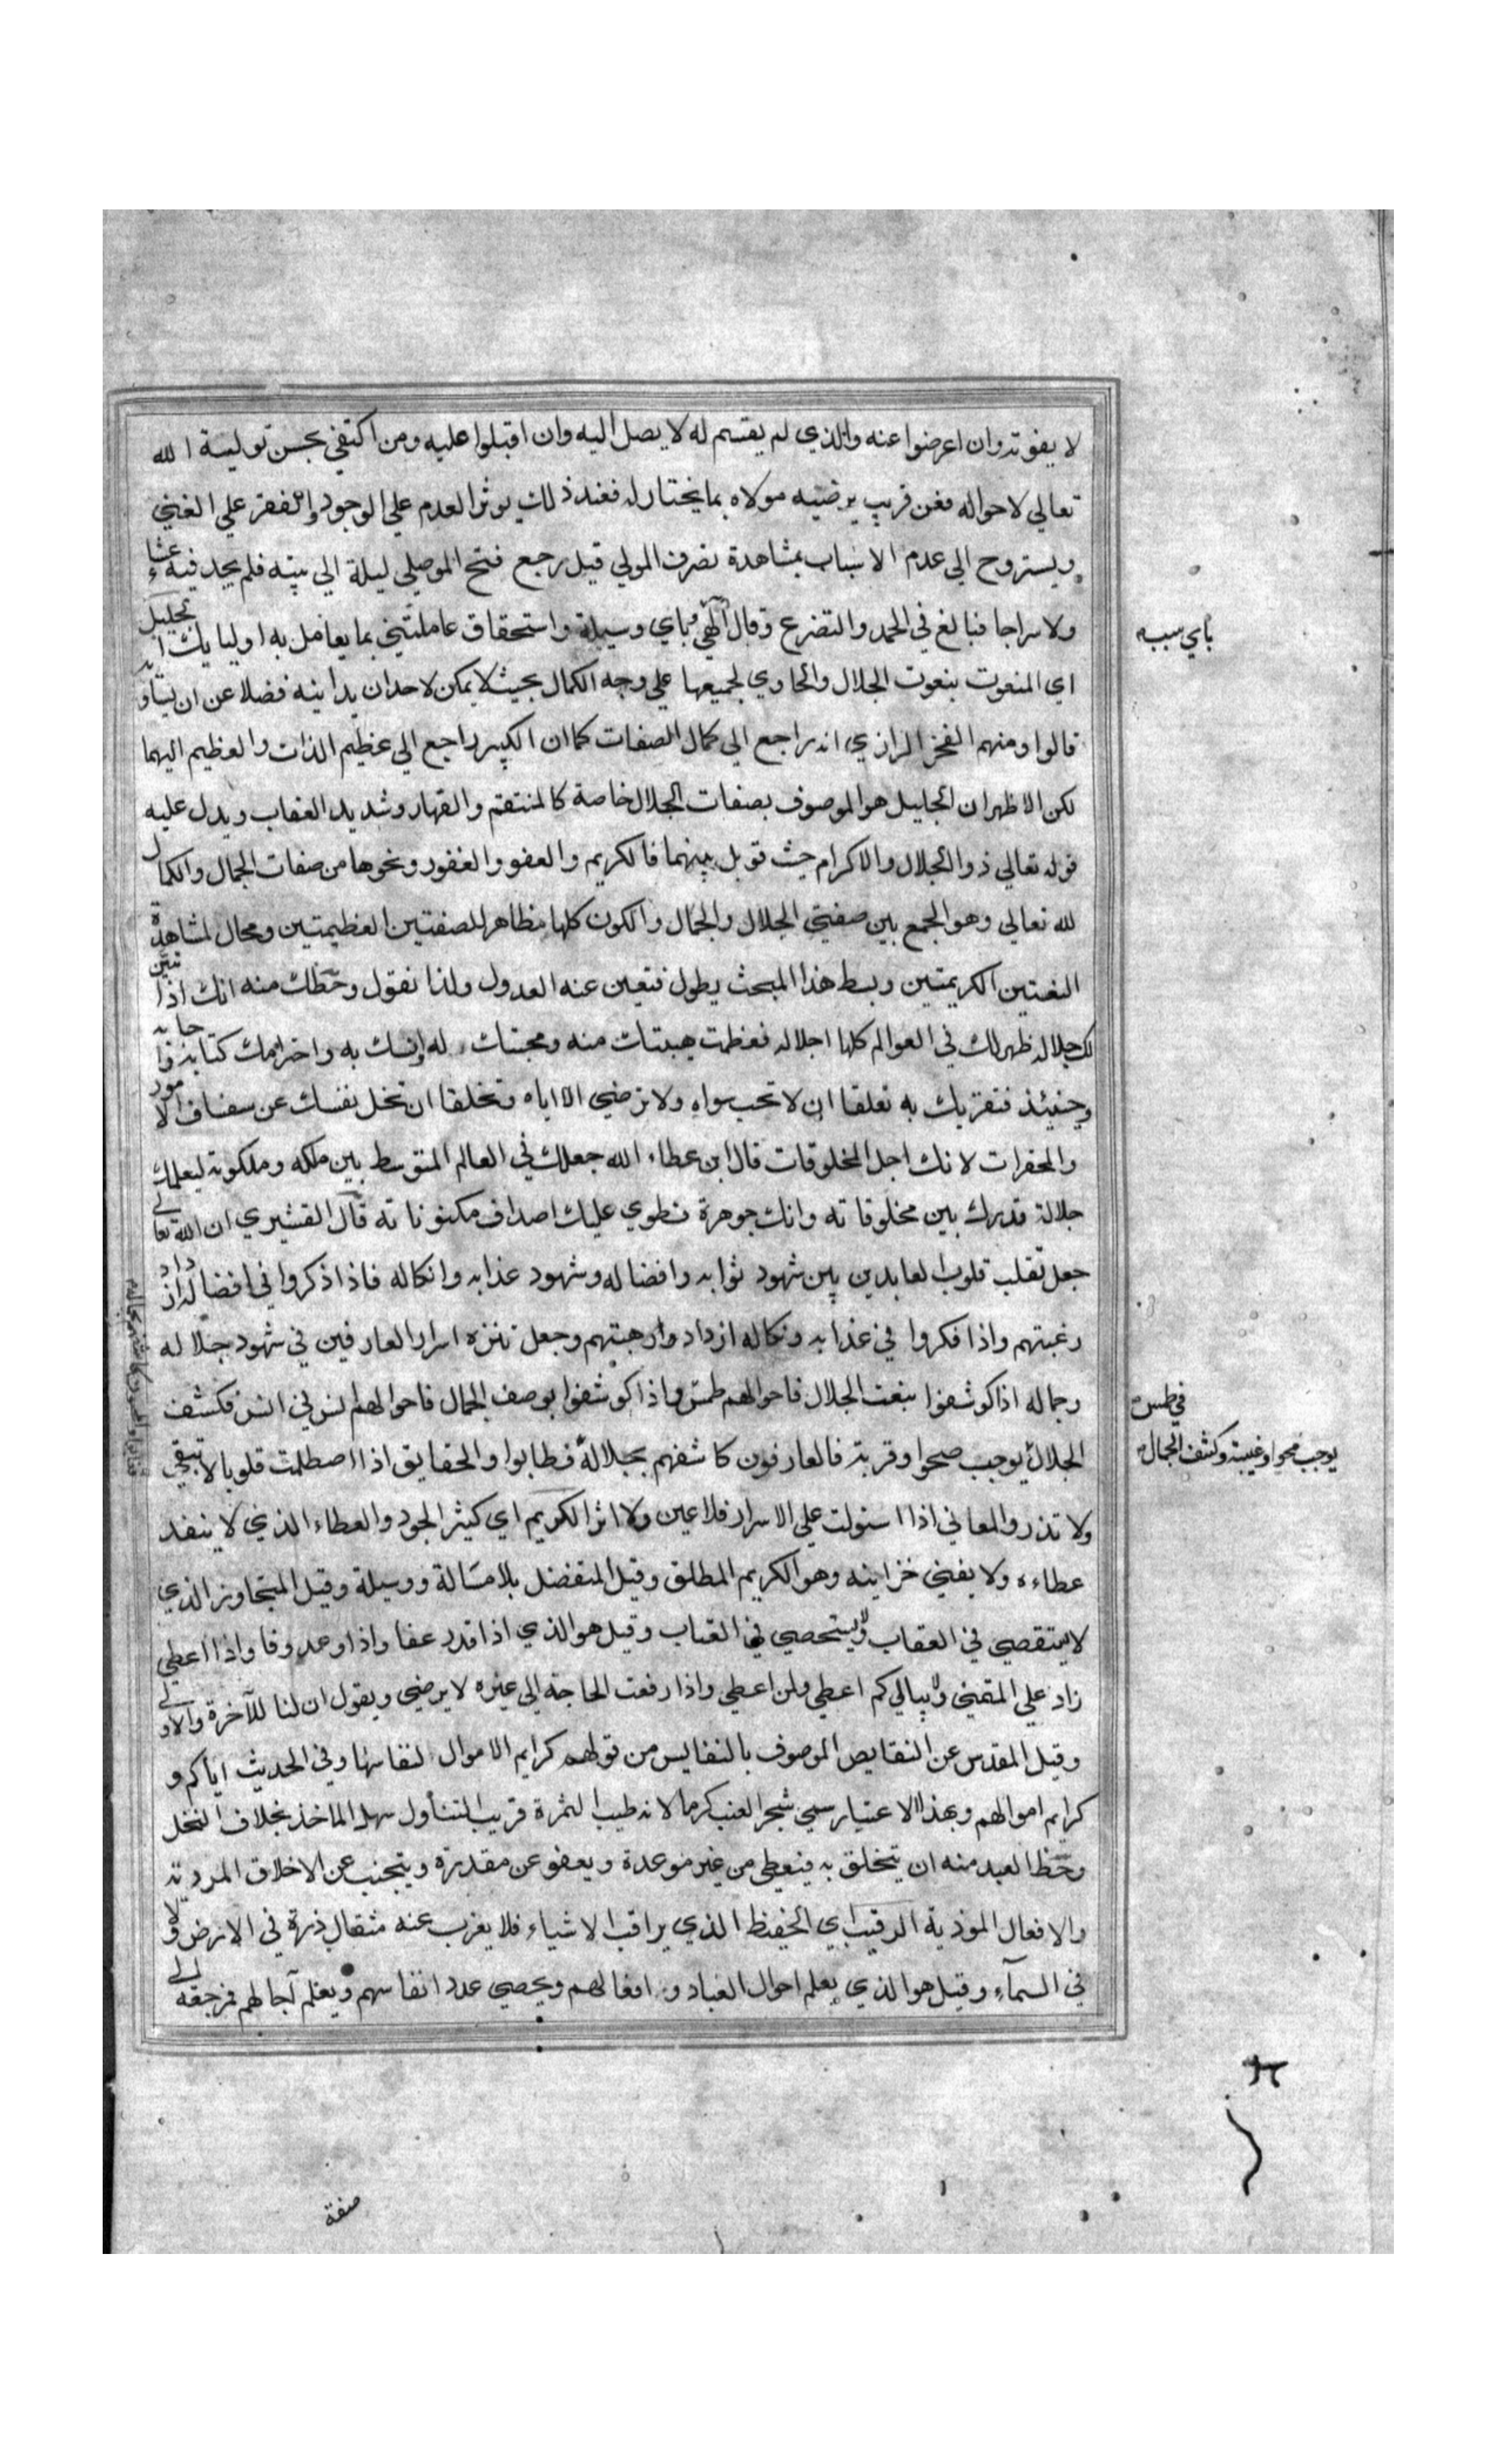 لا يفوته وان اعرضوا عنه والذي لم يقسم له لا يصل اليه وان اقبلوا عليه ومن اكتفي بحسن تولية الله
تعالي لاحواله فعن قريب يرضيه مولاه بما يختار له فعند ذلك يوثر العدم علي الوجود والفقر علي الغني
ويستروح الي عدم الاسباب بمشاهدة تصرف المولي قيل رجع فتح الموصلي ليلة الي بيته فلم يجد فيه عشاء
ولا سراجا فبالغ في الحمد والتضرع وقال الهي وباي وسيلة واستحقاق عاملتني بما يعامل به اوليايك الجليل
باي سبب
اي المنعوت بنعوت الجلال والحاوي لجميعها علي وجه الكمال بحيث لا يمكن لاحد ان يدانيه فضلا عن ان يساويه
قالوا ومنهم الفخر الرازي انه راجع الي كمال الصفات كما ان الكبير راجع الي عظيم الذات والعظيم اليهما
لكن الاظهر ان الجليل هو الموصوف بصفات الجلال خاصة كالمنتقم والقهار وشديد العقاب ويدل عليه
قوله تعالي ذو الجلال والاكرام حيث قوبل بينهما فالكريم والعفو والغفور ونحوها من صفات الجمال والكمال
لله تعالي وهو الجمع بين صفتي الجلال والجمال والكون كلها مظاهر للصفتين العظيمتين ومحال لمشاهدة
النعتين الكريمتين وبسط هذا المبحث يطول فتعين عنه العدول ولذا نقول وحظك منه انك اذا تبين
لك جلاله ظهر لك في العوالم كلها اجلاله فعظمت هيبتك منه ومحبتك له وانسك به واحترامك كتابه
وحينئذ فتقربك به تعلقا ان لا تحب سواه ولا ترضي الا اياه وتخلقا ان تخل نفسك عن سفساف الامور
والمحقرات لانك اجل المخلوقات قال ابن عطاء الله جعلك في العالم المتوسط بين ملكه وملكوته ليعلمك
جلالة قدرك بين مخلوقاته وانك جوهرة تطوي عليك اصداف مكنوناته قال القشيري ان الله تعالي
جعل تقلب قلوب العابدين بين شهود ثوابه وافضاله وشهود عذابه وانكاله فاذا ذكروا في افضاله ازداد
رغبتهم واذا فكروا في عذابه ونكاله ازدادوا رهبتهم وجعل تنزه اسرار العارفين في شهود جلاله
وجماله اذا كوشفوا بنعت الجلال فاحوالهم طمس واذا كوشفوا بوصف الجمال فاحوالهم انس في انس فكشف
في طمس
الجلال يوجب صحوا وقربة فالعارفون كاشفهم بجلاله فطابوا والحقايق اذا اصطلمت قلوبا لا تبقي
يوجب محوا وغيبة وكشف الجمال
ولا تذر والمعاني اذا استولت علي الاسرار فلا عين ولا اثر الكريم اي كثير الجود والعطاء الذي لا ينفد
عطاءه ولا يفني خزاينه وهو الكريم المطلق وقيل المتفضل بلا مسالة ووسيلة وقيل المتجاوز الذي
لا يستقصي في العقاب ولا يستحصي في العتاب وقيل هو الذي اذا قدر عفا واذا وعد وفا واذا اعطي
زاد علي المتمني ولا يبالي كم اعطي ولمن اعطي واذا رفعت الحاجة الي غيره لا يرضي ويقول ان لنا للآخرة والاولي
وقيل المقدس عن النقايص الموصوف بالنفايس من قولهم كرايم الاموال لنفاسها وفي الحديث اياكم و
كرايم اموالهم وبهذا الاعتبار سمي شجر العنب كرما لانه طيب الثمرة قريب التناول سهل الماخذ بخلاف النخل
وحظ العبد منه ان يتخلق به فيعطي من غير موعدة ويعفو عن مقدرة ويتجنب عن الاخلاق المردية
والافعال الموذية الرقيب اي الحفيظ الذي يراقب الاشياء فلا يعزب عنه مثقال ذرة في الارض ولا
في السماء وقيل هو الذي يعلم احوال العباد وافعالهم ويحصي عدد انفاسهم ويعلم آجالهم فمرجعه الي
صفة